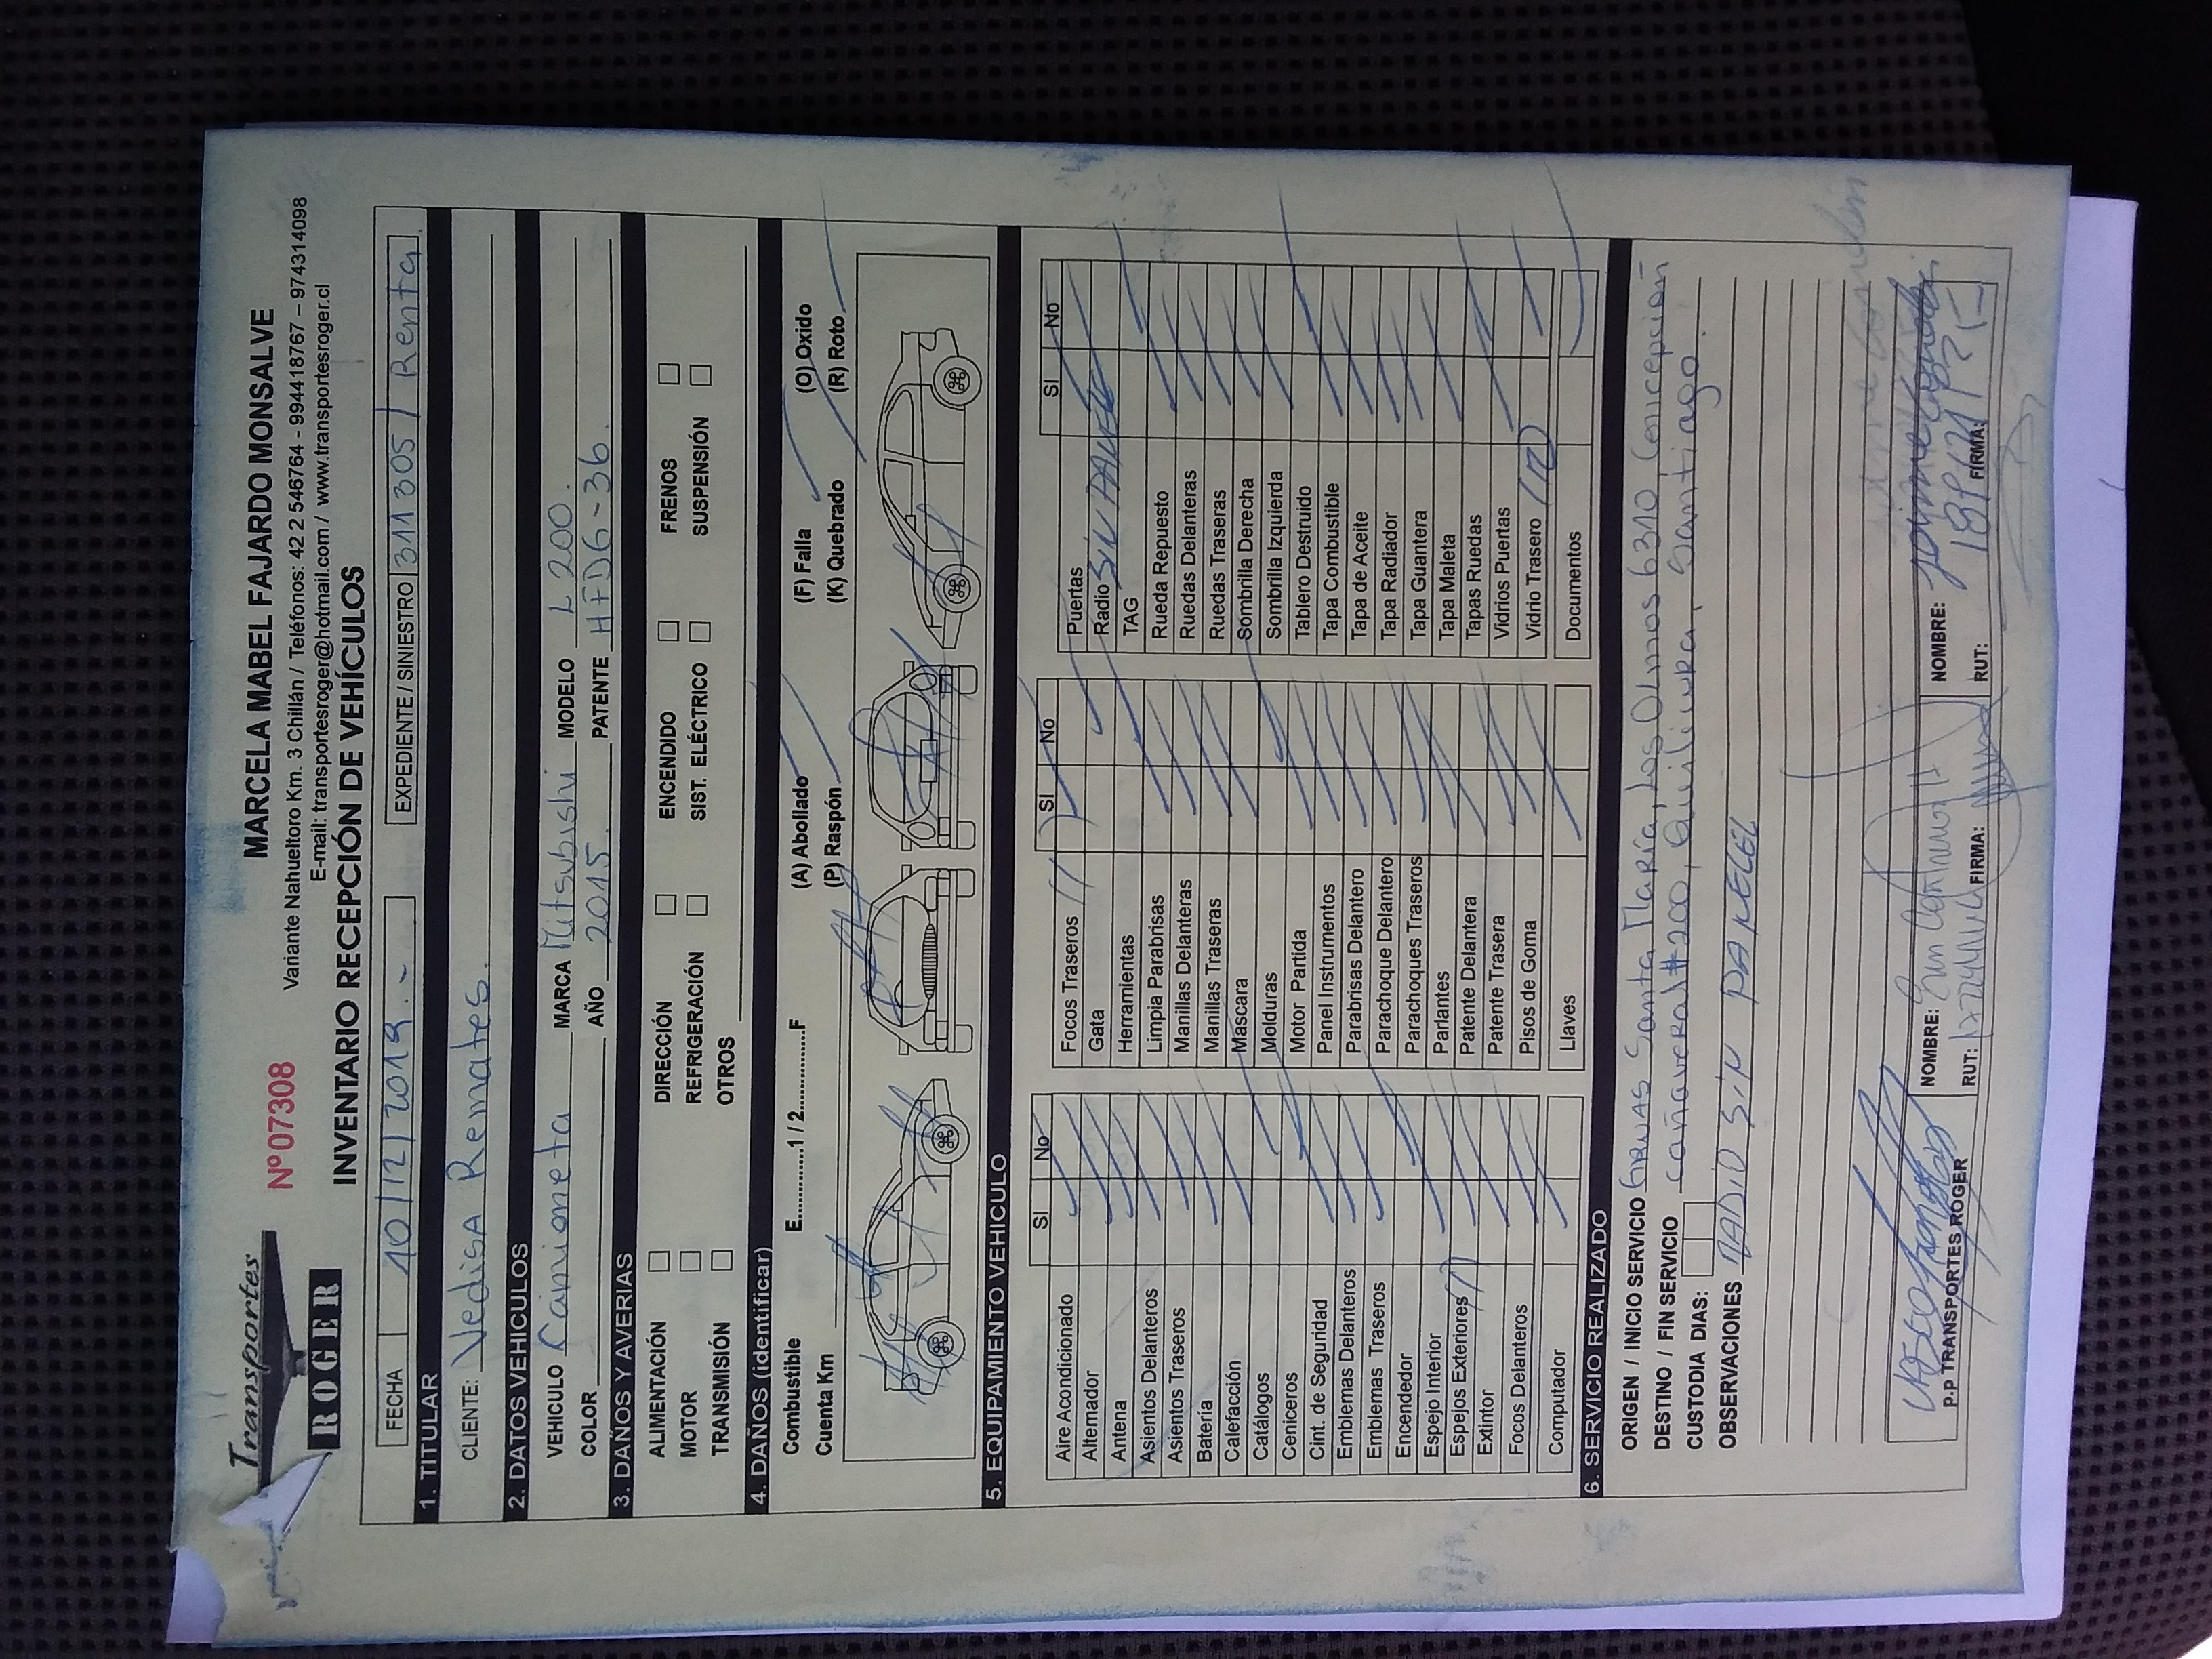 Transportes
ROGER
Nº 07308
MARCELA MABEL FAJARDO MONSALVE
Variante Nahueltoro Km. 3 Chillán / Teléfonos: 42 2 546764 - 994418767 – 974314098
E-mail: transportesroger@hotmail.com / www.transportesroger.cl
INVENTARIO RECEPCIÓN DE VEHÍCULOS
FECHA 10/12/2019.- EXPEDIENTE / SINIESTRO 311305 / Renta
1. TITULAR
CLIENTE: Vedisa Remates.
2. DATOS VEHICULOS
VEHICULO Camioneta MARCA Mitsubishi MODELO L200.
COLOR AÑO 2015. PATENTE HFDG-36.
3. DAÑOS Y AVERIAS
ALIMENTACIÓN DIRECCIÓN ENCENDIDO FRENOS
MOTOR REFRIGERACIÓN SIST. ELÉCTRICO SUSPENSIÓN
TRANSMISIÓN OTROS
4. DAÑOS (identificar)
Combustible E............1 / 2............F (A) Abollado (F) Falla (O) Oxido
Cuenta Km (P) Raspón (K) Quebrado (R) Roto
5. EQUIPAMIENTO VEHICULO
SI No
Aire Acondicionado
Alternador
Antena
Asientos Delanteros
Asientos Traseros
Batería
Calefacción
Catálogos
Ceniceros
Cint. de Seguridad
Emblemas Delanteros
Emblemas Traseros
Encendedor
Espejo Interior
Espejos Exteriores
Extintor
Focos Delanteros
Computador
SI No
Focos Traseros
Gata
Herramientas
Limpia Parabrisas
Manillas Delanteras
Manillas Traseras
Mascara
Molduras
Motor Partida
Panel Instrumentos
Parabrisas Delantero
Parachoque Delantero
Parachoques Traseros
Parlantes
Patente Delantera
Patente Trasera
Pisos de Goma
Llaves
SI No
Puertas
Radio SIN PANEL
TAG
Rueda Repuesto
Ruedas Delanteras
Ruedas Traseras
Sombrilla Derecha
Sombrilla Izquierda
Tablero Destruido
Tapa Combustible
Tapa de Aceite
Tapa Radiador
Tapa Guantera
Tapa Maleta
Tapas Ruedas
Vidrios Puertas
Vidrio Trasero
Documentos
6. SERVICIO REALIZADO
ORIGEN / INICIO SERVICIO Gruas Santa Maria, Los Olmos 6310 Concepción
DESTINO / FIN SERVICIO cañaveral #200, Quilicura, Santiago.
CUSTODIA DIAS:
OBSERVACIONES RADIO SIN PANEL
p.p TRANSPORTES ROGER
NOMBRE:
RUT: FIRMA:
NOMBRE:
RUT: FIRMA: